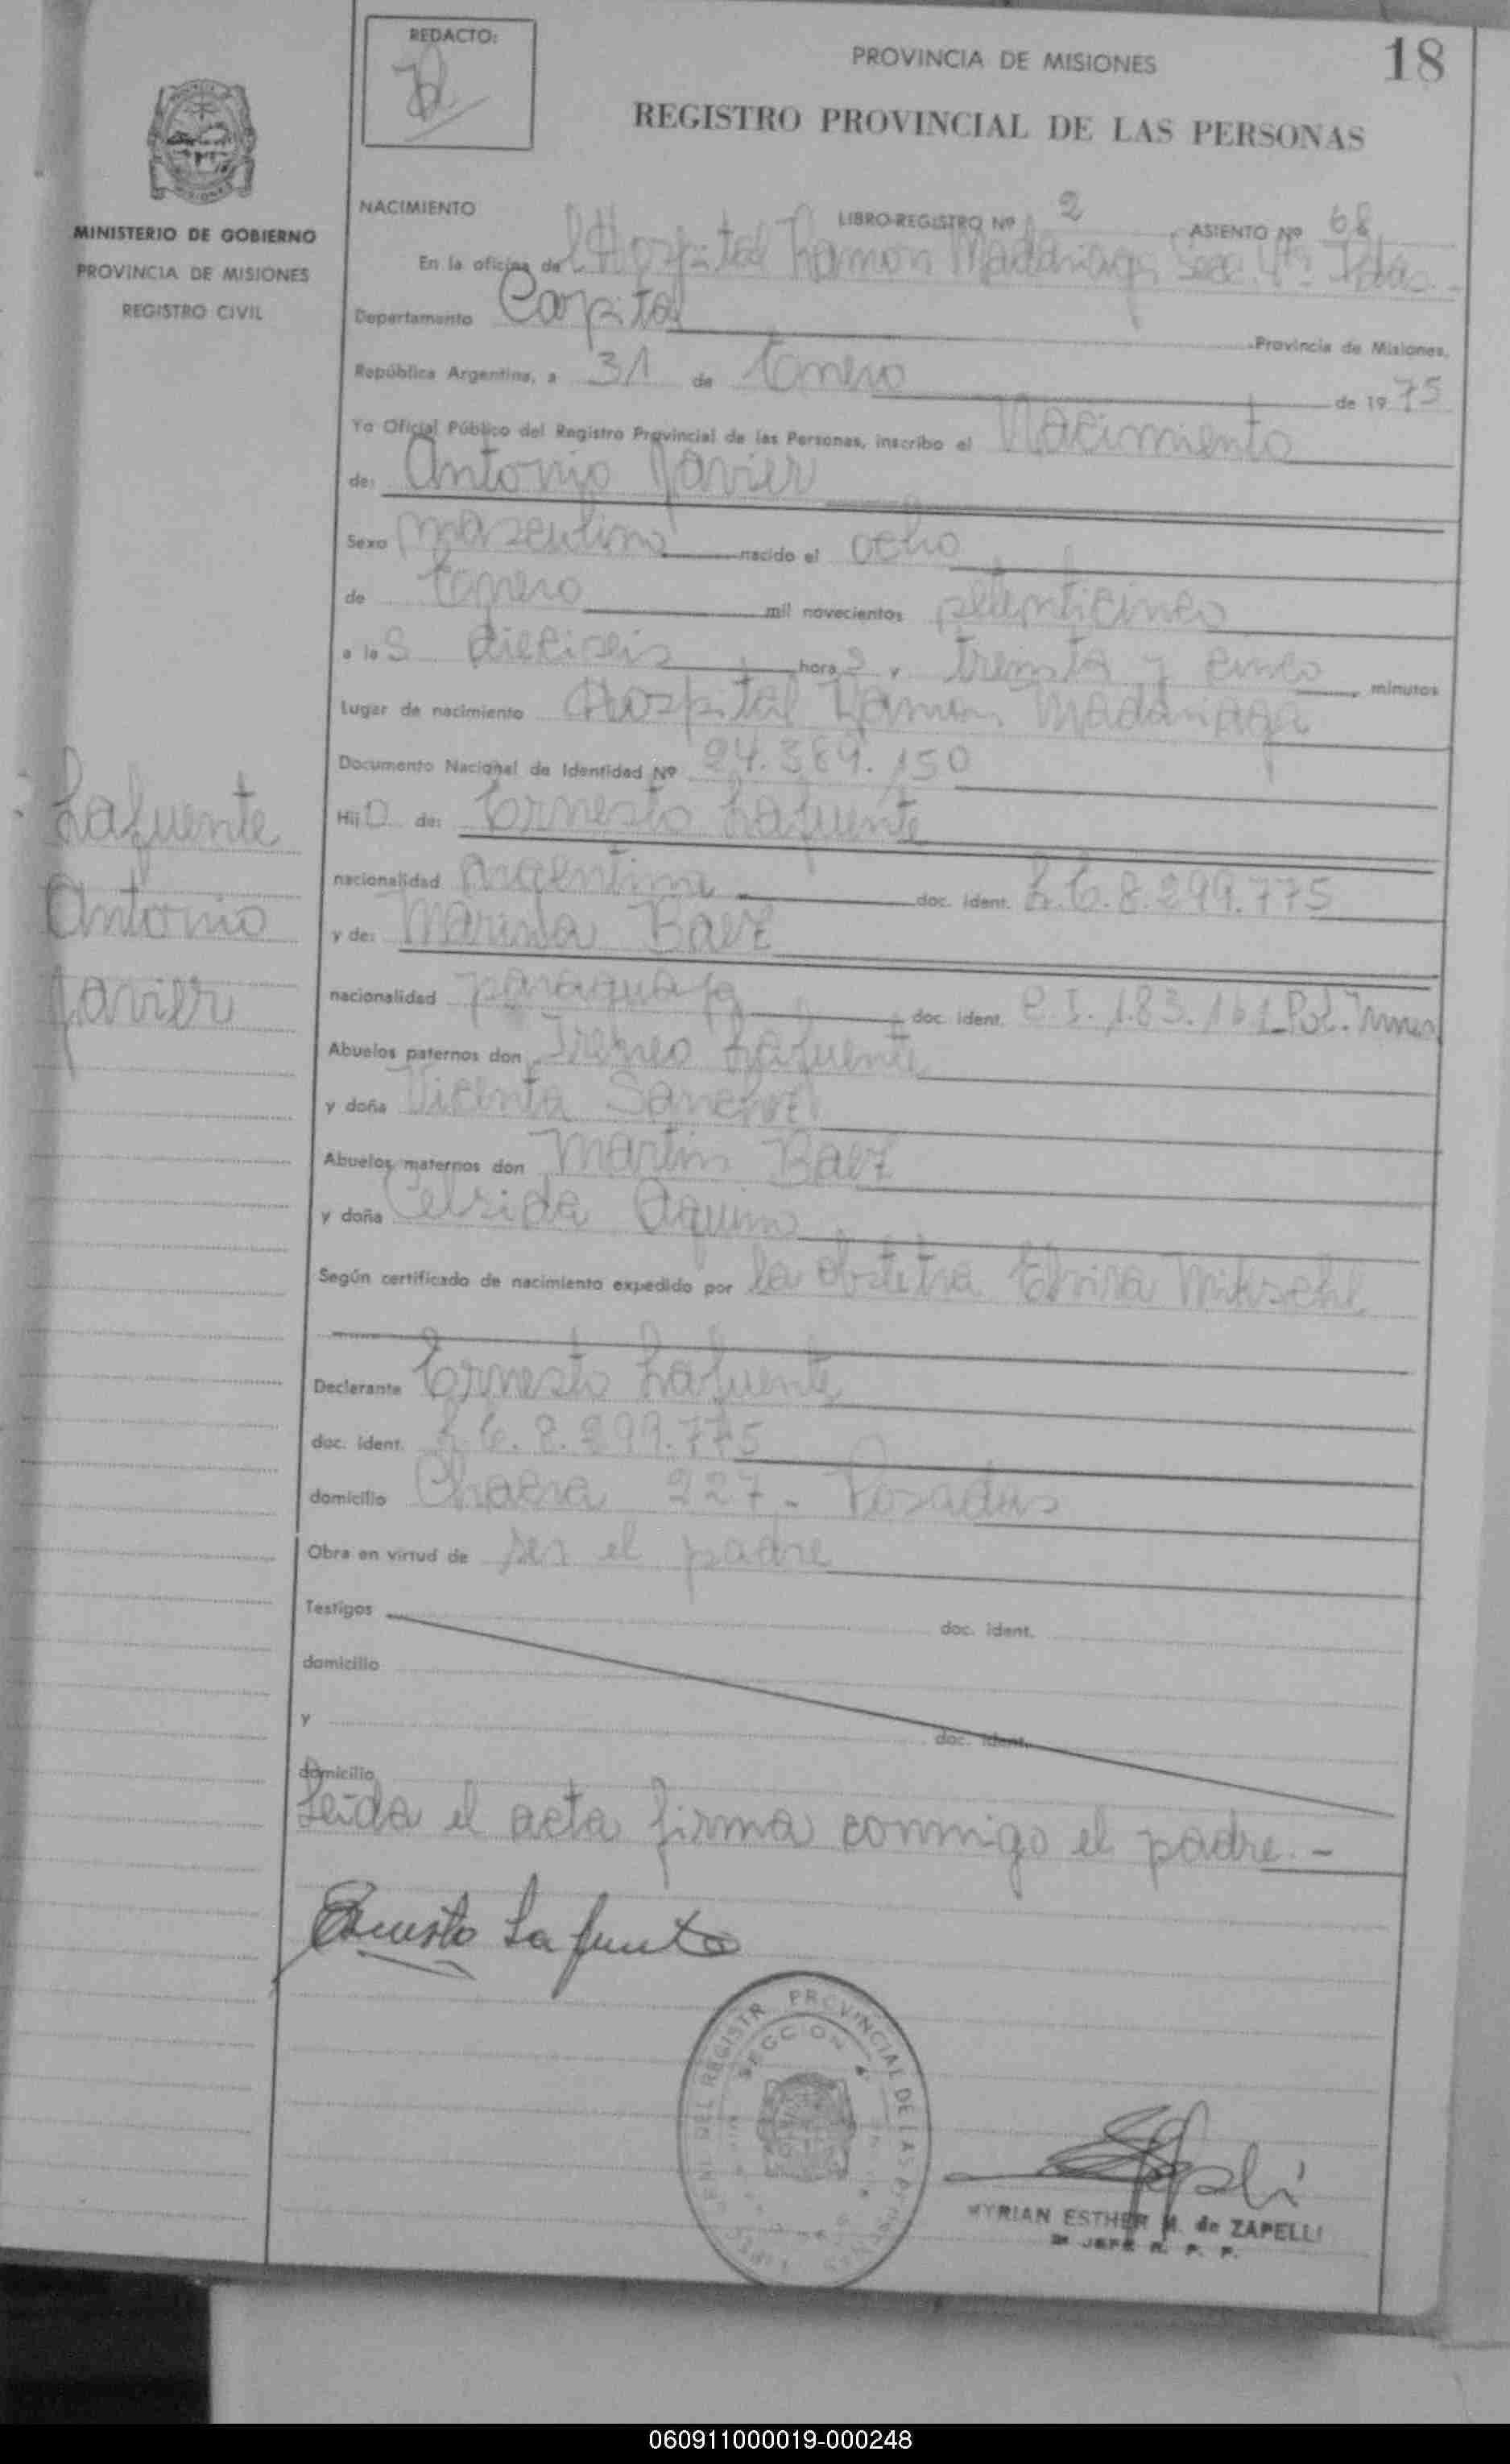 REDACTO:
PROVINCIA DE MISIONES
18
REGISTRO PROVINCIAL DE LAS PERSONAS
MINISTERIO DE GOBIERNO
PROVINCIA DE MISIONES
REGISTRO CIVIL
NACIMIENTO LIBRO-REGISTRO Nº 2, ASIENTO Nº 68
En la oficina del Hospital Ramon Madariaga Secc. 4ta. Pdas.-
Departamento Capital Provincia de Misiones,
República Argentina, a 31 de Enero de 1975
Yo Oficial Público del Registro Provincial de las Personas, inscribo el Nacimiento
de: Antonio Javier
Sexo masculino nacido el ocho
de Enero mil novecientos setenticinco
a las dieciseis horas y treinta y cinco minutos
Lugar de nacimiento Hospital Ramon Madariaga
Documento Nacional de Identidad Nº 24.389.150
Hijo de: Ernesto Lafuente
nacionalidad argentina doc. ident. L.E.8.299.775
y de: Marina Baez
nacionalidad paraguaya doc. ident. C.I. 183.161 Pol. Mnes
Abuelos paternos don Ireneo Lafuente
y doña Vicenta Sanchez
Abuelos maternos don Martin Baez
y doña Celsida Aquino
Según certificado de nacimiento expedido por la obstetra Elvira
Declarante Ernesto Lafuente
doc. ident. L.E. 8.299.775
domicilio Chacra 227 - Posadas
Obra en virtud de ser el padre
Testigos doc. ident.
domicilio
y doc. ident.
domicilio
Leida el acta firma conmigo el padre.-
Lafuente
Antonio
Javier
Ernesto Lafuente
DEL REGISTR. PROVINCIAL DE LAS PERSONAS
SECCION
MYRIAN ESTHER M. de ZAPELLI
JEFE R. P. P.
060911000019-000248